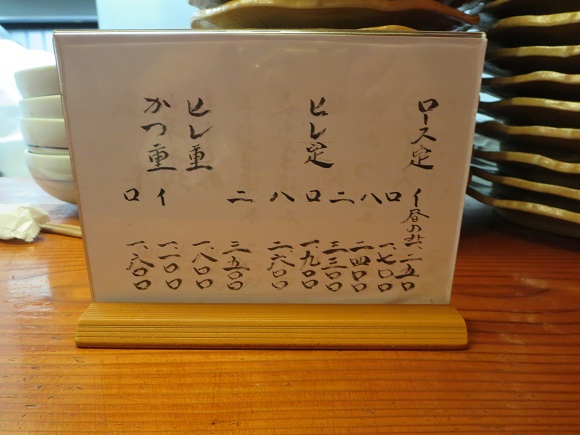 ロース定
イ 昼のみ 一二五〇
ロ 一、七〇〇
ハ 二、四〇〇
ニ 三、三〇〇
ヒレ定
ロ 一、九〇〇
ハ 二、六〇〇
ニ 三、五〇〇
ヒレ重 一、八〇〇
かつ重
イ 一、一〇〇
ロ 一、六〇〇